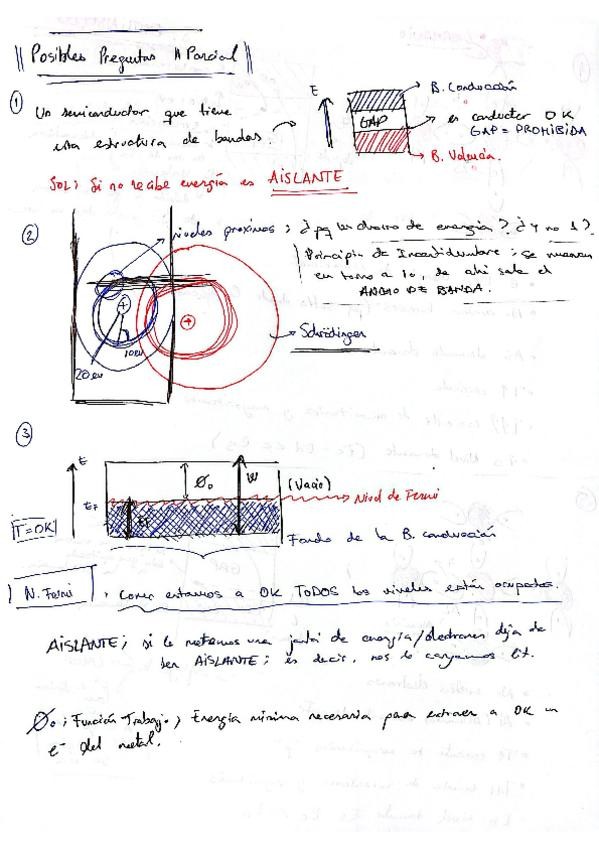 Posibles Preguntas 1 Parcial
① Un semiconductor que tiene
una estructura de bandas.
E
B. Conducción
GAP
conductor OK
GAP = PROHIBIDA
B. Valencia.
SOL: Si no recibe energía es AISLANTE
② niveles proximos; ¿pq de energía? ¿y no 1?
Principio de Incertidumbre; se mueven
en torno a 10, de ahi sale el
ANCHO DE BANDA.
+
+
10 eV
20 eV
Schrödinger
③
E
Ø₀
W
(Vacío)
EF
EF
Nivel de Fermi
T=0K
Fondo de la B. conducción
N. Fermi, como estamos a 0K TODOS los niveles están ocupados.
AISLANTE; si le metemos una de energía/electrones deja de
ser AISLANTE; es decir, nos lo cargamos
Ø₀; Función Trabajo; Energía mínima necesaria para extraer a 0K un
e⁻ del metal.